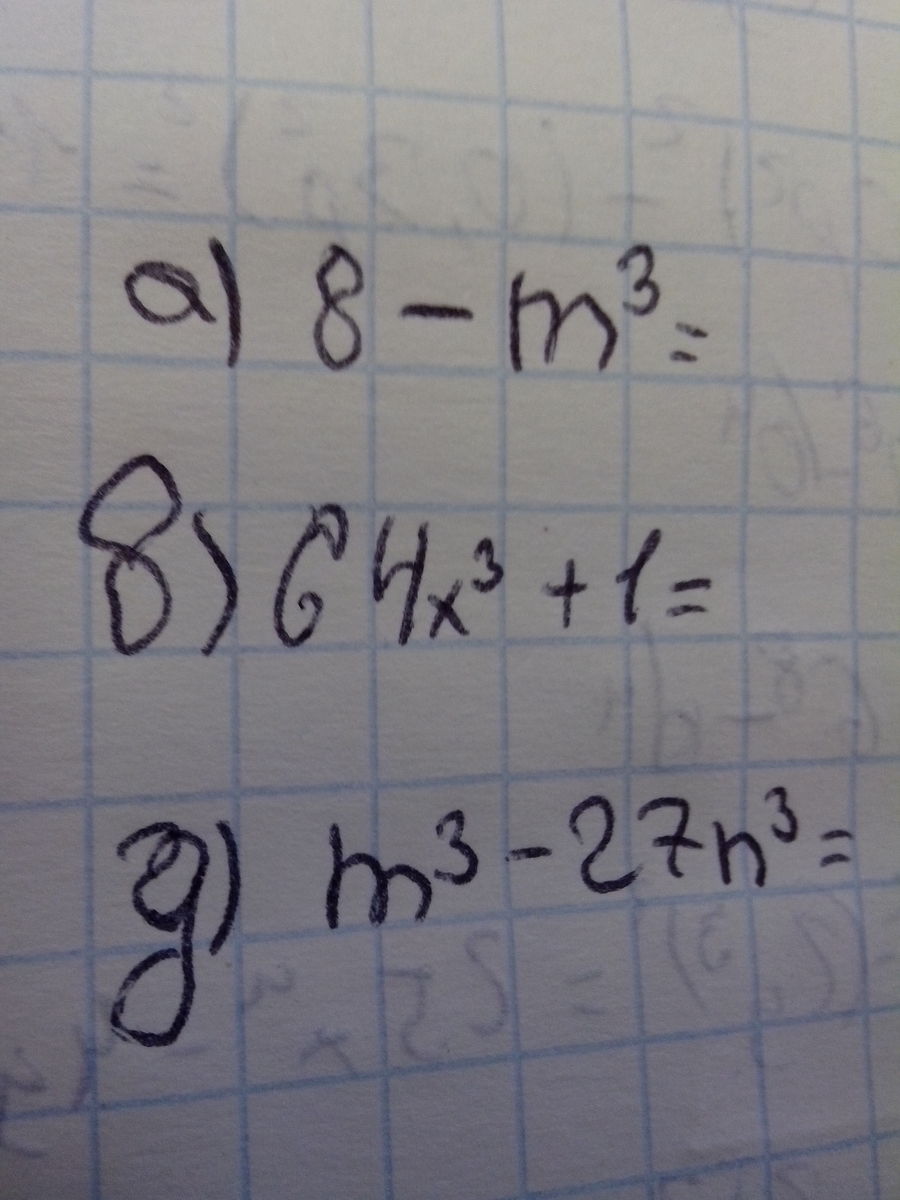 а) 8 - m³ =
в) 64x³ + 1 =
д) m³ - 27n³ =